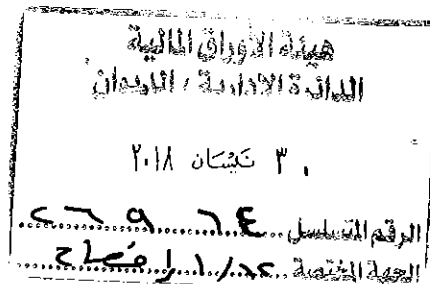 هيئة الأوراق المالية
الدائرة الادارية / الديوان
٣٠ نيسان ٢٠١٨
الرقم المتسلسل ٢٦٩٦٤
الجهة المختصة ٦٢/١/ افصاح